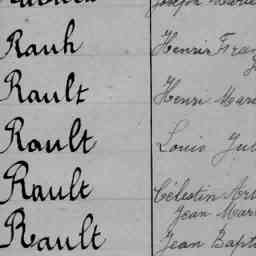 Joseph Marie
Rauh Henri Fran
Rault Henri Mari
Rault Louis Jul
Rault Célestin
Jean Mari
Rault Jean Bapti